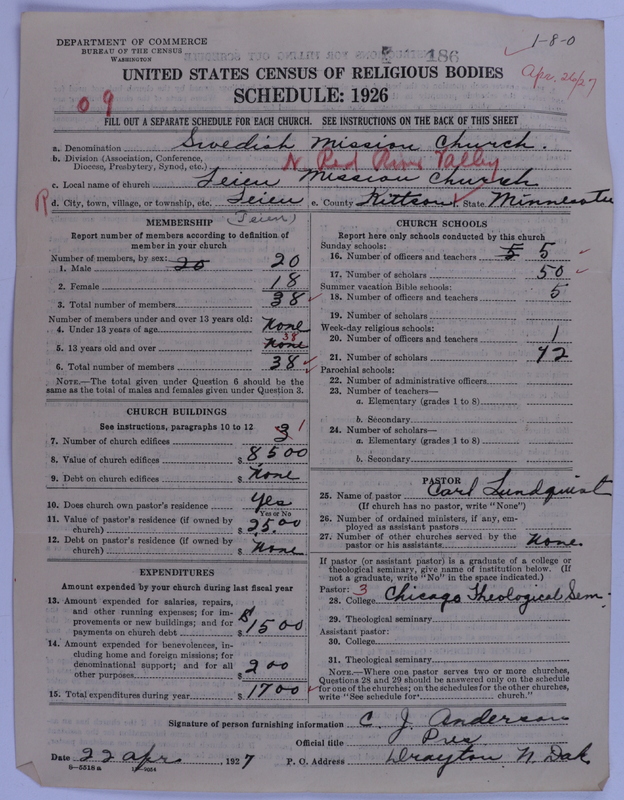 DEPARTMENT OF COMMERCE
BUREAU OF THE CENSUS
WASHINGTON
186
1-8-0
Apr. 26/27
UNITED STATES CENSUS OF RELIGIOUS BODIES
SCHEDULE: 1926
09
FILL OUT A SEPARATE SCHEDULE FOR EACH CHURCH. SEE INSTRUCTIONS ON THE BACK OF THIS SHEET
a. Denomination Swedish Mission Church.
b. Division (Association, Conference, Diocese, Presbytery, Synod, etc.) N. Red River Valley
c. Local name of church Teien Mission Church
R d. City, town, village, or township, etc. Teien e. County Kittson f. State Minnesota
(Teien)
MEMBERSHIP
Report number of members according to definition of
member in your church
Number of members, by sex: 20
1. Male 20
2. Female 18
3. Total number of members 38
Number of members under and over 13 years old:
4. Under 13 years of age None
5. 13 years old and over None 38
6. Total number of members 38
NOTE.—The total given under Question 6 should be the
same as the total of males and females given under Question 3.
CHURCH BUILDINGS
See instructions, paragraphs 10 to 12
7. Number of church edifices 3 1
8. Value of church edifices $ 8500
9. Debt on church edifices $ None
10. Does church own pastor's residence Yes
Yes or No
11. Value of pastor's residence (if owned by
church) $ 25.00
12. Debt on pastor's residence (if owned by
church) $ None
EXPENDITURES
Amount expended by your church during last fiscal year
13. Amount expended for salaries, repairs,
and other running expenses; for im-
provements or new buildings; and for
payments on church debt $ 1500
14. Amount expended for benevolences, in-
cluding home and foreign missions; for
denominational support; and for all
other purposes $ 200
15. Total expenditures during year $ 1700
CHURCH SCHOOLS
Report here only schools conducted by this church
Sunday schools:
16. Number of officers and teachers 5 5
17. Number of scholars 50
Summer vacation Bible schools:
18. Number of officers and teachers 5
19. Number of scholars
Week-day religious schools:
20. Number of officers and teachers 1
21. Number of scholars 42
Parochial schools:
22. Number of administrative officers
23. Number of teachers—
a. Elementary (grades 1 to 8)
b. Secondary
24. Number of scholars—
a. Elementary (grades 1 to 8)
b. Secondary
PASTOR
25. Name of pastor Carl Lundquist
(If church has no pastor, write "None")
26. Number of ordained ministers, if any, em-
ployed as assistant pastors
27. Number of other churches served by the
pastor or his assistants None
If pastor (or assistant pastor) is a graduate of a college or
theological seminary, give name of institution below. (If
not a graduate, write "No" in the space indicated.)
Pastor: 3
28. College Chicago Theological Sem.
29. Theological seminary
Assistant pastor:
30. College
31. Theological seminary
NOTE.—Where one pastor serves two or more churches,
Questions 28 and 29 should be answered only on the schedule
for one of the churches; on the schedules for the other churches,
write "See schedule for church.
Signature of person furnishing information C. J. Anderson
Official title Pres
Date 22 apr. 1927 P. O. Address Drayton N. Dak
8-5518a